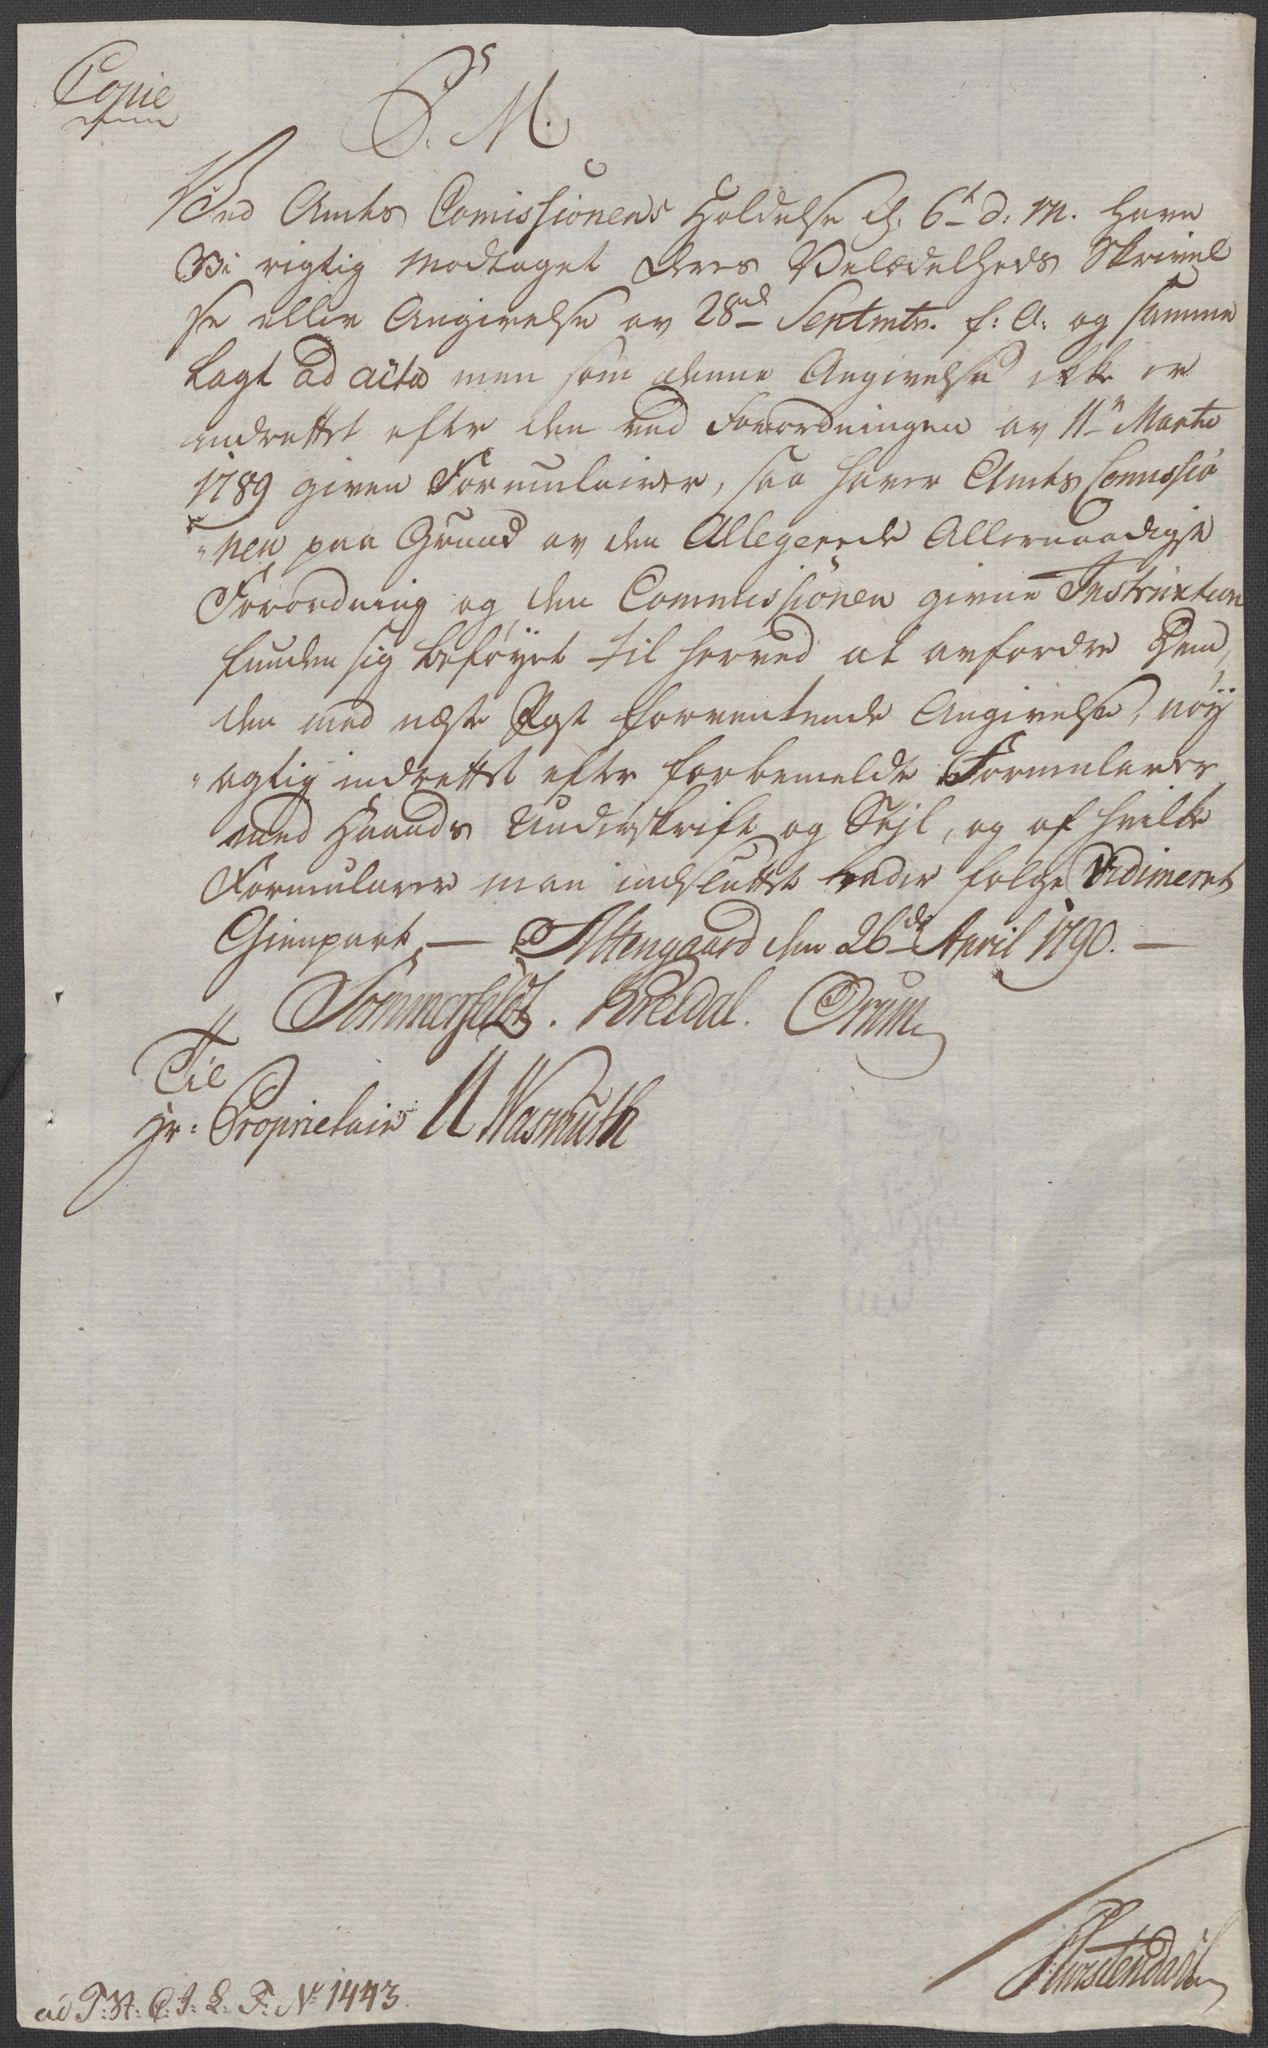 Copie
S. M.
Ved Amts Comissionens Holdelse d. 6t d: M. have
Vi rigtig modtaget Deres Velædelheds Skrivel
se eller Angivelse av 28de Septmtr. f: A: og samme
lagt ad acta men som denne Angivelse ikke er
indrettet efter den ved Forordningen av 11te Martii
1789 given Formulairer, saa haver Amts Comissio
"nen paa Grund av den Allegerede Allernaadigste
Forordning og den Commissionen givne Instruxtion
funden sig beføyet til herved at avfordre Dem,
den med næste Post forventende Angivelse, nøy
"agtig indrettet efter forbemeldte Formularer
med Haands Underskrift og Sejl, og af hvilke
Formularer man indsluttet lader følge Vidimeret
Gienpart. — Altengaard den 26de April 1790. —
Sommerfeldt. Kreidal. Ørum
Til
Hr: Proprietair U Wasmuth
ad T: N: C: J: L: F: No 1443.